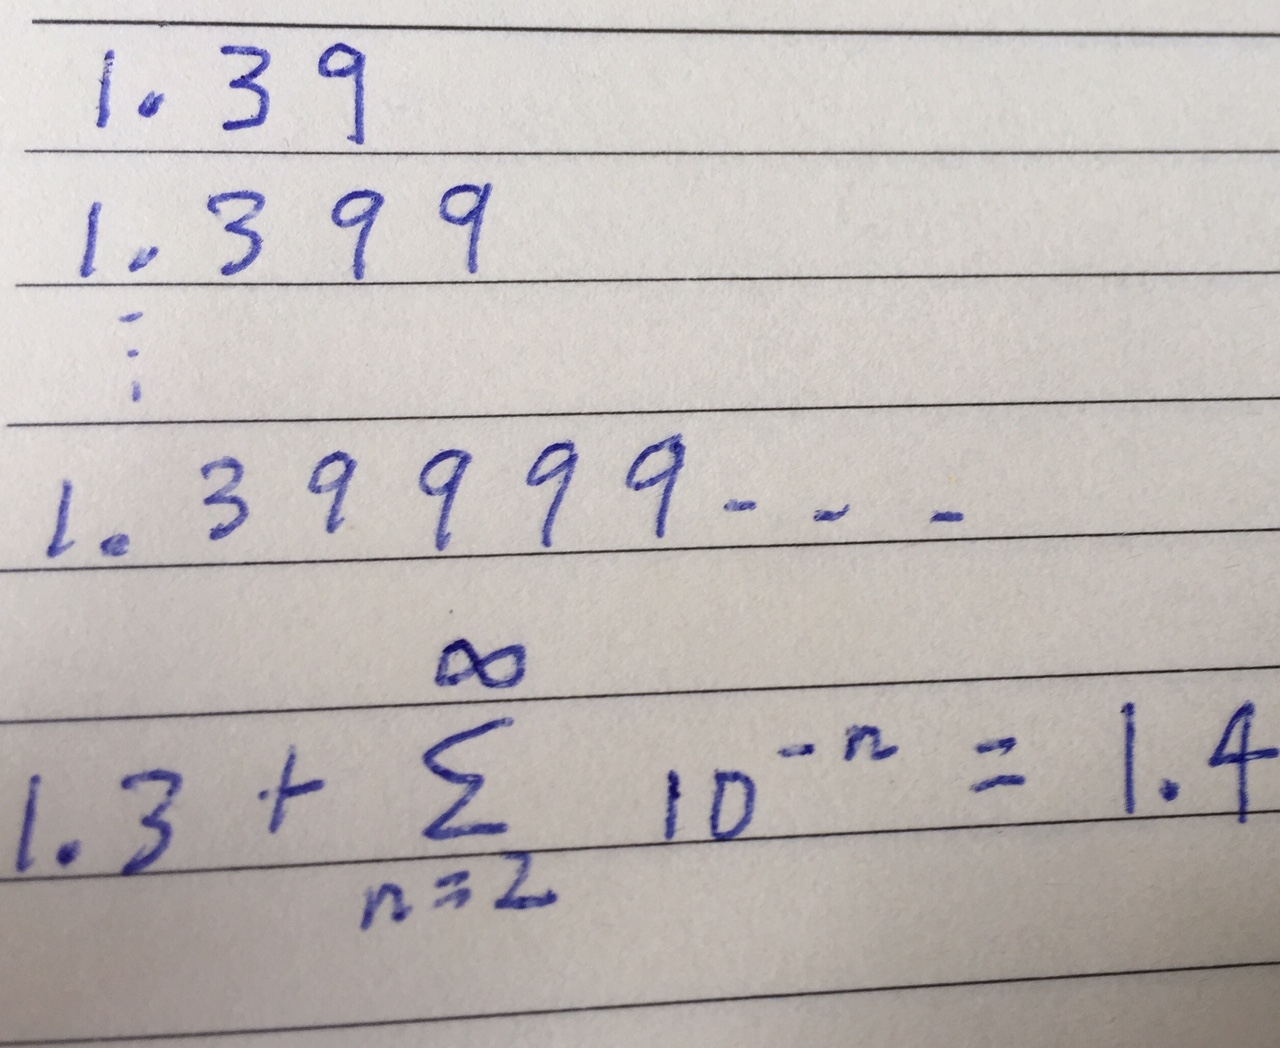 1.39
1.399
⋮
1.39999---
∞
1.3 + Σ 10^-n = 1.4
n=2